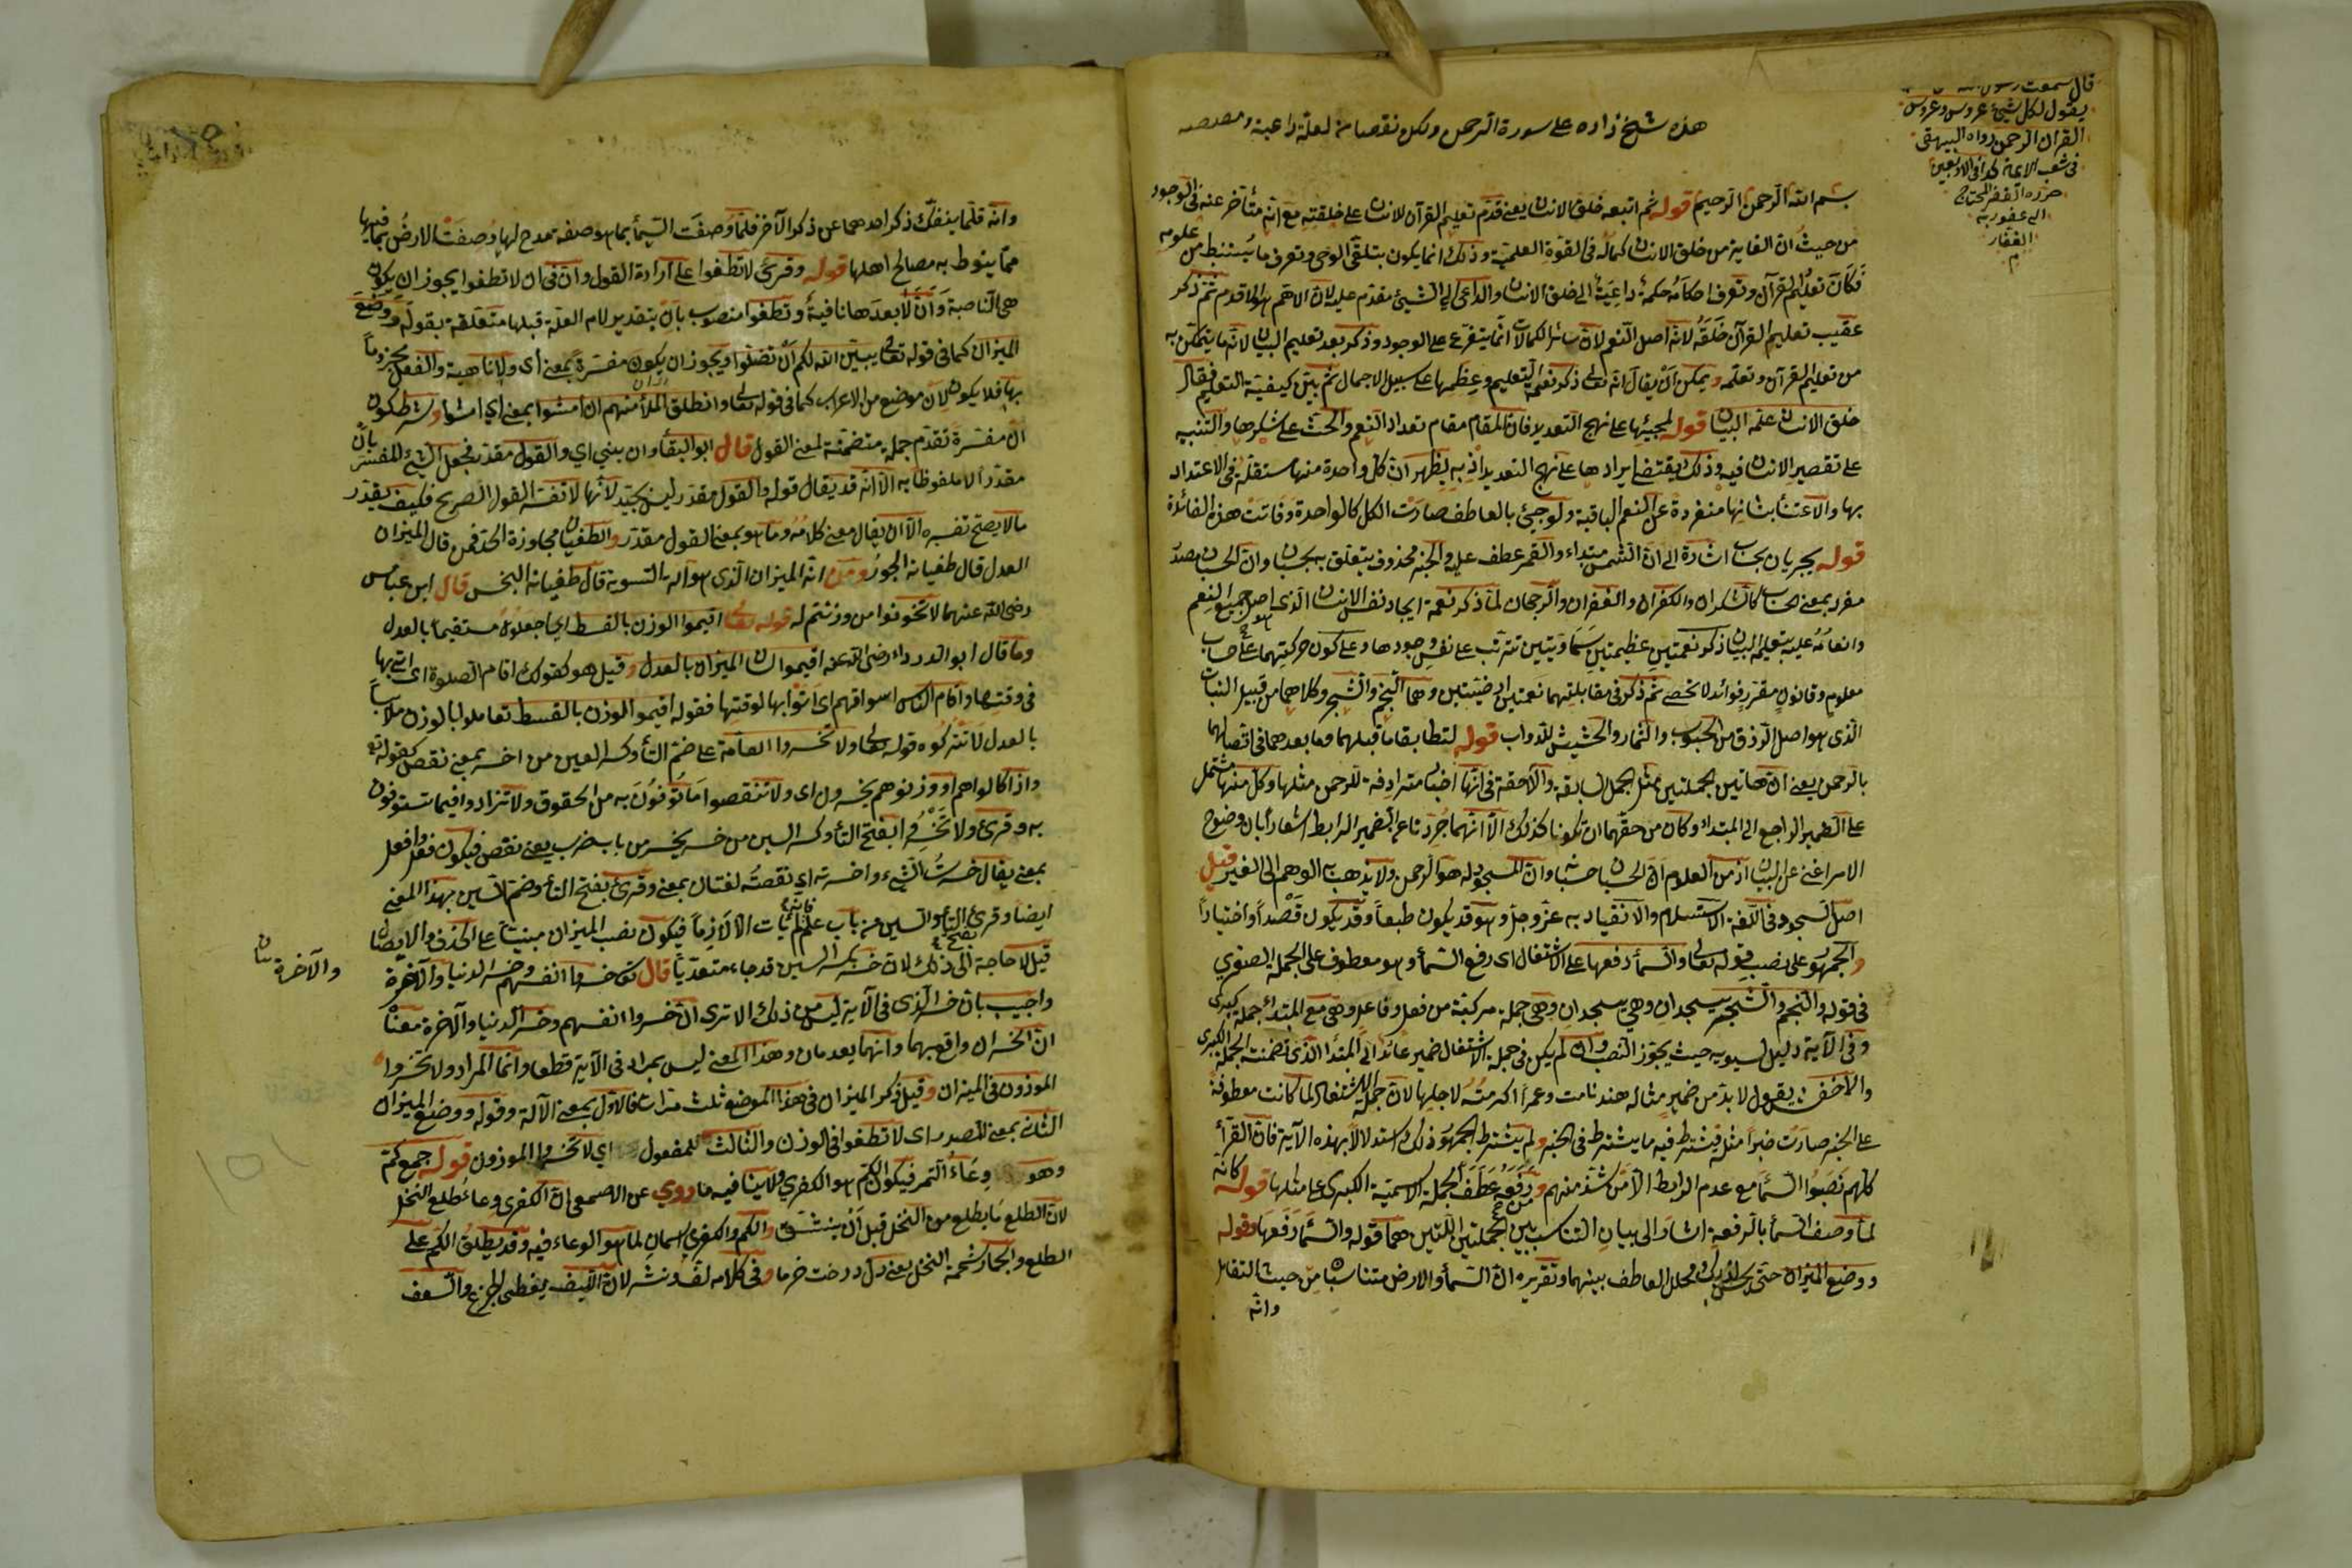 هذه شيخ زاده على سورة الرحمن
قال سمعت
يقول لكل شيئ عروس وعروس
القرآن الرحمن رواه البيهقى
فى شعب الايمان
حرره الفقير المحتاج
الى عفو ربه
الغفار
م
بسم الله الرحمن الرحيم قوله ثم اتبعه خلق الانسان يعنى قدم تعليم القرآن للانسان على خلقته مع انه متأخر عنه فى الوجود
من حيث ان الغاية من خلق الانسان كماله فى القوة العلمية وذلك انما يكون بتلقى الوحى وتعرف ما يستنبط من علومه
فكان تعليم القرآن وتعرف احكامه حكمة داعية الى خلق الانسان والداعى الى الشيئ مقدم عليه لان الاهم اولا قدم ثم ذكر
عقيب تعليم القرآن خلقه لانه اصل النعم لان سائر الكمالات انما يتفرع على الوجود وذكر بعد تعليم البيان لانه ما يتمكن به
من تعليم القرآن وتعلمه ويمكن ان يقال انه تعالى ذكر نعمة التعليم وعظمها على سبيل الاجمال ثم بين كيفية التعليم فقال
خلق الانسان علمه البيان قوله لمجيئها على نهج التعديد فان المقام مقام تعداد النعم والحث على شكرها والتنبيه
على تقصير الانسان فيه وذلك يقتضى ايرادها على نهج التعديد اذ به يظهر ان كل واحدة منها مستقلة فى الاعتداد
بها والاعتناء بشانها منفردة عن النعم الباقية ولو جيئ بالعاطف صارت الكل كالواحدة وفاتت هذه الفائدة
قوله يجريان بحسبان اشارة الى ان الشمس مبتداء والقمر عطف عليه والخبر محذوف يتعلق به بحسبان وان الحسبان مصدر
مفرد بمعنى الحساب كالشكران والكفران والغفران والرجحان لما ذكر نعمة ايجاد نفس الانسان الذى هو اصل جميع النعم
وانعامه عليه بتعليم البيان ذكر نعمتين عظيمتين سماويتين تترتب على نفس وجودها وعلى كون حركتيهما على حساب
معلوم وقانون مقرر فوائد لا تحصى ثم ذكر فى مقابلتهما نعمتين ارضيتين وهما النجم والشجر وكلاهما من قبيل النبات
الذى هو اصل الرزق من الحبوب والثمار والحشيش للدواب قوله لتطابقا ما قبلهما وما بعدهما فى اتصالهما
بالرحمن يعنى ان هاتين الجملتين مثل الجمل السابقة واللاحقة فى انها اخبار مترادفة للرحمن مثلها وكل منها مشتمل
على الضمير الراجع الى المبتداء وكان من حقهما ان تكونا كذلك الا انهما جردتا عن الضمير الرابط اشعارا بان وضوح
الامر اغنى عن البيان اذ من المعلوم ان الحسبان حسبانه وان المسجود له هو الرحمن ولا يذهب الوهم الى الغير قيل
اصل السجود فى اللغة الاستسلام والانقياد به عز وجل وهو قد يكون طبعا وقد يكون قصدا واختيارا
والجمهور على نصب قوله تعالى والسماء رفعها على الاشتغال اى رفع السماء وهو معطوف على الجملة الصغرى
فى قوله والنجم والشجر يسجدان وهى يسجدان وهى جملة مركبة من فعل وفاعل وهى مع المبتداء جملة كبرى
وفى الآية دليل لسيبويه حيث يجوز النصب وان لم يكن فى جملة الاشتغال ضمير عائد الى المبتدأ الذى تضمنته الجملة الكبرى
والاخفش يقول لا بد من ضمير مثاله هند قامت وعمرا اكرمته لاجلها لان جملة الاشتغال لما كانت معطوفة
على الخبر صارت خبرا مثله فيشترط فيه ما يشترط فى الخبر ولم يشترط الجمهور ذلك استدلالا بهذه الآية فان القرأ
كلهم نصبوا السماء مع عدم الرابط الا من شذ منهم ورفعه عطف الجملة الاسمية الكبرى على مثلها قوله كانه
لما وصف السماء بالرفعة اشار الى بيان التناسب بين الجملتين اللتين هما قوله والسماء رفعها وقوله
ووضع الميزان حتى يحسن لذلك تخلل العاطف بينهما وتقريره ان السماء والارض متناسبان من حيث التقابل
وانه
وانه قلما ينفك ذكر احدهما عن ذكر الآخر فلما وصفت السماء بما هو صفة مدح لها وصفت الارض بما فيها
مما ينوط به مصالح اهلها قوله وقرئ لا تطغوا على ارادة القول وان فى ان لا تطغوا يجوز ان يكون
هى الناصبة وان لا بعدها نافية وتطغوا منصوب بان بتقدير لام العلة قبلها متعلقة بقوله ووضع
الميزان كما فى قوله تعالى يبين الله لكم ان تضلوا ويجوز ان يكون مفسرة بمعنى اى ولا ناهية والفعل مجزوما
بها فلا يكون لان موضع من الاعراب كما فى قوله تعالى وانطلق الملأ منهم ان امشوا بمعنى اى امشوا وشرط كون
ان مفسرة تقدم جملة متضمنة لمعنى القول قال ابو البقاء وان بمعنى اي والقول مقدر فجعل الشيئ المفسر بان
مقدرا لا ملفوظا به الا انه قد يقال قوله والقول مقدر ليس بجيد لانها لا تفسر القول الصريح فكيف يقدر
ما لا يصح تفسيره الا ان يقال معنى كلامه وما هو بمعنى القول مقدر والطغيان مجاوزة الحد فمن قال الميزان
العدل قال طغيانه الجور ومن انه الميزان الذى هو آلة التسوية قال طغيانه البخس قال ابن عباس
رضى الله عنهما لا تخونوا من وزنتم له قوله تعالى اقيموا الوزن بالقسط اى اجعلوه مستقيما بالعدل
وما قال ابو الدرداء رضى الله عنه اقيموا لسان الميزان بالعدل وقيل هو كقولك اقام الصلوة اى اتى بها
فى وقتها واقام الناس اسواقهم اى اتوا بها لوقتها فقوله اقيموا الوزن بالقسط تعاملوا بالوزن ملابسا
بالعدل لا تتركوه قوله تعالى ولا تخسروا العامة على ضم التاء وكسر العين من اخسر بمعنى نقص كقوله تعالى
واذا كالوهم او وزنوهم يخسرون اى ولا تنقصوا ما توفون به من الحقوق ولا تزادوا فيما تستوفون
به وقرئ ولا تخسروا بفتح التاء وكسر السين من خسر يخسر من باب ضرب يعنى نقص فيكون فعل وافعل
بمعنى يقال خسرت الشيء واخسرته اى نقصته لغتان بمعنى وقرئ بفتح التاء وضم السين بهذا المعنى
ايضا وقرئ بفتح التاء والسين من باب علم فانه لم يأت الا لازما فيكون نصب الميزان مبنيا على الحذف والايصال
قيل لا حاجة الى ذلك لان خسر بكسر السين قد جاء متعديا قال تعالى خسروا انفسهم وخسر الدنيا والآخرة
والآخرة
واجيب بان خسر الذى فى الآية ليس من ذلك الا ترى ان خسروا انفسهم وخسر الدنيا والآخرة معناه
ان الخسران واقع بهما وانهما يعدمان وهذا المعنى ليس بمراد فى الآية قطعا وانما المراد ولا تخسروا
الموزون فى الميزان وقيل ذكر الميزان فى هذا الموضع ثلث مرات فالاول بمعنى الآلة وقوله ووضع الميزان
الثانى بمعنى المصدر اى لا تطغوا فى الوزن والثالث للمفعول اي لا تخسروا الموزون قوله جمع كم
وهو وعاء التمر فيكون الكم هو الكفرى ولا ينافيه ما روي عن الاصمعى ان الكفرى وعاء طلع النخل
لان الطلع ما يطلع من النخل قبل ان ينشق والكم والكفرى اسمان لما هو الوعاء فيه وقد يطلق الكم على
الطلع والجمار شحمة النخل يعنى دل درخت خرما وفى كلامه لف ونشر لان الليف يغطى الجذع والسعف